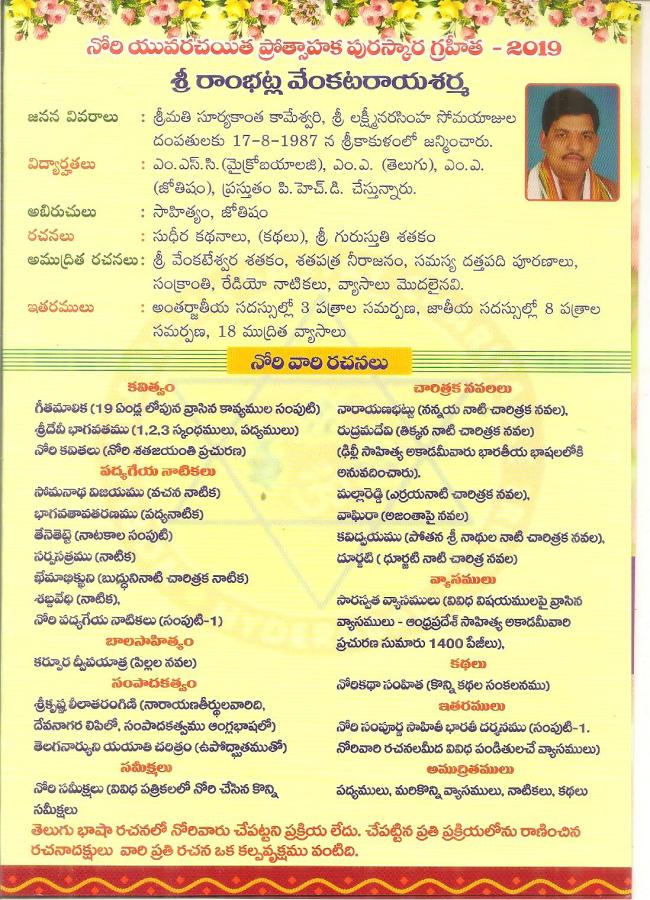 నోరి యువరచయిత ప్రోత్సాహక పురస్కార గ్రహీత - 2019
శ్రీ రాంభట్ల వేంకటరాయశర్మ
జనన వివరాలు : శ్రీమతి సూర్యకాంత కామేశ్వరి, శ్రీ లక్ష్మీనరసింహ సోమయాజుల
దంపతులకు 17-8-1987 న శ్రీకాకుళంలో జన్మించారు.
విద్యార్హతలు : ఎం.ఎస్.సి.(మైక్రోబయాలజి), ఎం.ఎ. (తెలుగు), ఎం.ఎ.
(జోతిషం), ప్రస్తుతం పి.హెచ్.డి. చేస్తున్నారు.
అభిరుచులు : సాహిత్యం, జోతిషం
రచనలు : సుధీర కథనాలు, (కథలు), శ్రీ గురుస్తుతి శతకం
అముద్రిత రచనలు : శ్రీ వేంకటేశ్వర శతకం, శతపత్ర నీరాజనం, సమస్య దత్తపది పూరణాలు,
సంక్రాంతి, రేడియో నాటికలు, వ్యాసాలు మొదలైనవి.
ఇతరములు : అంతర్జాతీయ సదస్సుల్లో 3 పత్రాల సమర్పణ, జాతీయ సదస్సుల్లో 8 పత్రాల
సమర్పణ, 18 ముద్రిత వ్యాసాలు
నోరి వారి రచనలు
కవిత్వం
గీతమాలిక (19 ఏండ్ల లోపున వ్రాసిన కావ్యముల సంపుటి)
శ్రీదేవీ భాగవతము (1,2,3 స్కంధములు, పద్యములు)
నోరి కవితలు (నోరి శతజయంతి ప్రచురణ)
పద్యగేయ నాటికలు
సోమనాథ విజయము (వచన నాటిక)
భాగవతావతరణము (పద్యనాటిక)
తేనెతెట్టె (నాటకాల సంపుటి)
సర్పసత్రము (నాటిక)
ఖేమాభిక్ఖుని (బుద్ధునినాటి చారిత్రక నాటిక)
శబ్దవేధి (నాటిక),
నోరి పద్యగేయ నాటికలు (సంపుటి-1)
బాలసాహిత్యం
కర్పూర ద్వీపయాత్ర (పిల్లల నవల)
సంపాదకత్వం
శ్రీకృష్ణ లీలాతరంగిణి (నారాయణతీర్థులవారిది,
దేవనాగర లిపిలో, సంపాదకత్వము ఆంగ్లభాషలో)
తెలగనార్యుని యయాతి చరిత్రం (ఉపోద్ఘాతముతో)
సమీక్షలు
నోరి సమీక్షలు (వివిధ పత్రికలలో నోరి చేసిన కొన్ని
సమీక్షలు
చారిత్రక నవలలు
నారాయణభట్టు (నన్నయ నాటి చారిత్రక నవల),
రుద్రమదేవి (తిక్కన నాటి చారిత్రక నవల)
(ఢిల్లీ సాహిత్య అకాడమీవారు భారతీయ భాషలలోకి
అనువదించారు).
మల్లారెడ్డి (ఎర్రయనాటి చారిత్రక నవల),
వాఘిరా (అజంతాపై నవల)
కవిద్వయము (పోతన శ్రీ నాథుల నాటి చారిత్రక నవల),
దూర్జటి ( ధూర్జటి నాటి చారిత్ర నవల)
వ్యాసములు
సారస్వత వ్యాసములు (వివిధ విషయములపై వ్రాసిన
వ్యాసములు - ఆంధ్రప్రదేశ్ సాహిత్య అకాడమీవారి
ప్రచురణ సుమారు 1400 పేజీలు),
కథలు
నోరికథా సంహిత (కొన్ని కథల సంకలనము)
ఇతరములు
నోరి సంపూర్ణ సాహితీ భారతీ దర్శనము (సంపుటి-1.
నోరివారి రచనలమీద వివిధ పండితులచే వ్యాసములు)
అముద్రితములు
పద్యములు, మరికొన్ని వ్యాసములు, నాటికలు, కథలు
తెలుగు భాషా రచనలో నోరివారు చేపట్టని ప్రక్రియ లేదు. చేపట్టిన ప్రతి ప్రక్రియలోను రాణించిన
రచనాదక్షులు వారి ప్రతి రచన ఒక కల్పవృక్షము వంటిది.